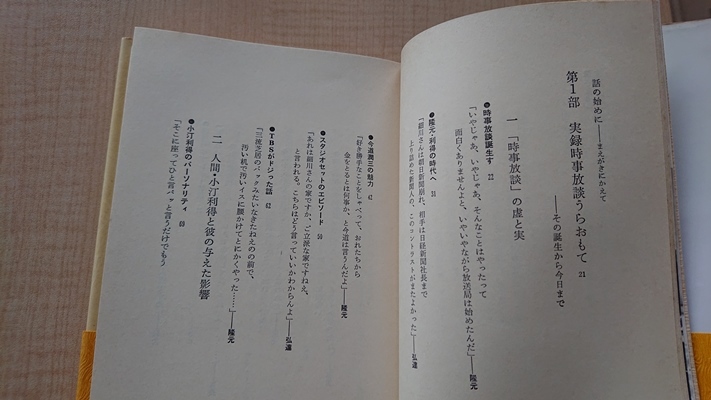 話の始めに——まえがきにかえて
第1部 実録時事放談うらおもて 21
——その誕生から今日まで
一 「時事放談」の虚と実
●時事放談誕生す 22
「いやじゃあ、いやじゃあ、そんなことはやったって
面白くありませんよと、いやいやながら放送局は始めたんだ」——隆元
●隆元・利得の時代へ 31
「細川さんは朝日新聞崩れ、相手は日経新聞社長まで
上り詰めた新聞人の、このコントラストがまたよかった」——弘達
●今道潤三の魅力 42
「好き勝手なことをしゃべって、おれたちから
金をとるとは何事か、と今道は言うんだよ」——隆元
●スタジオセットのエピソード 50
「あれは細川さんの家ですか、ご立派な家ですねえ、
と言われる。こちらはどう言っていいかわからんよ」——弘達
●TBSがドジった話 62
「三流芝居のバックみたいなきたねえのの前で、
汚い机で汚いイスに腰かけてとにかくやった……」——隆元
二 人間・小汀利得と彼の与えた影響
●小汀利得のパーソナリティ 68
「そこに座ってひと言パッと言うだけでもう